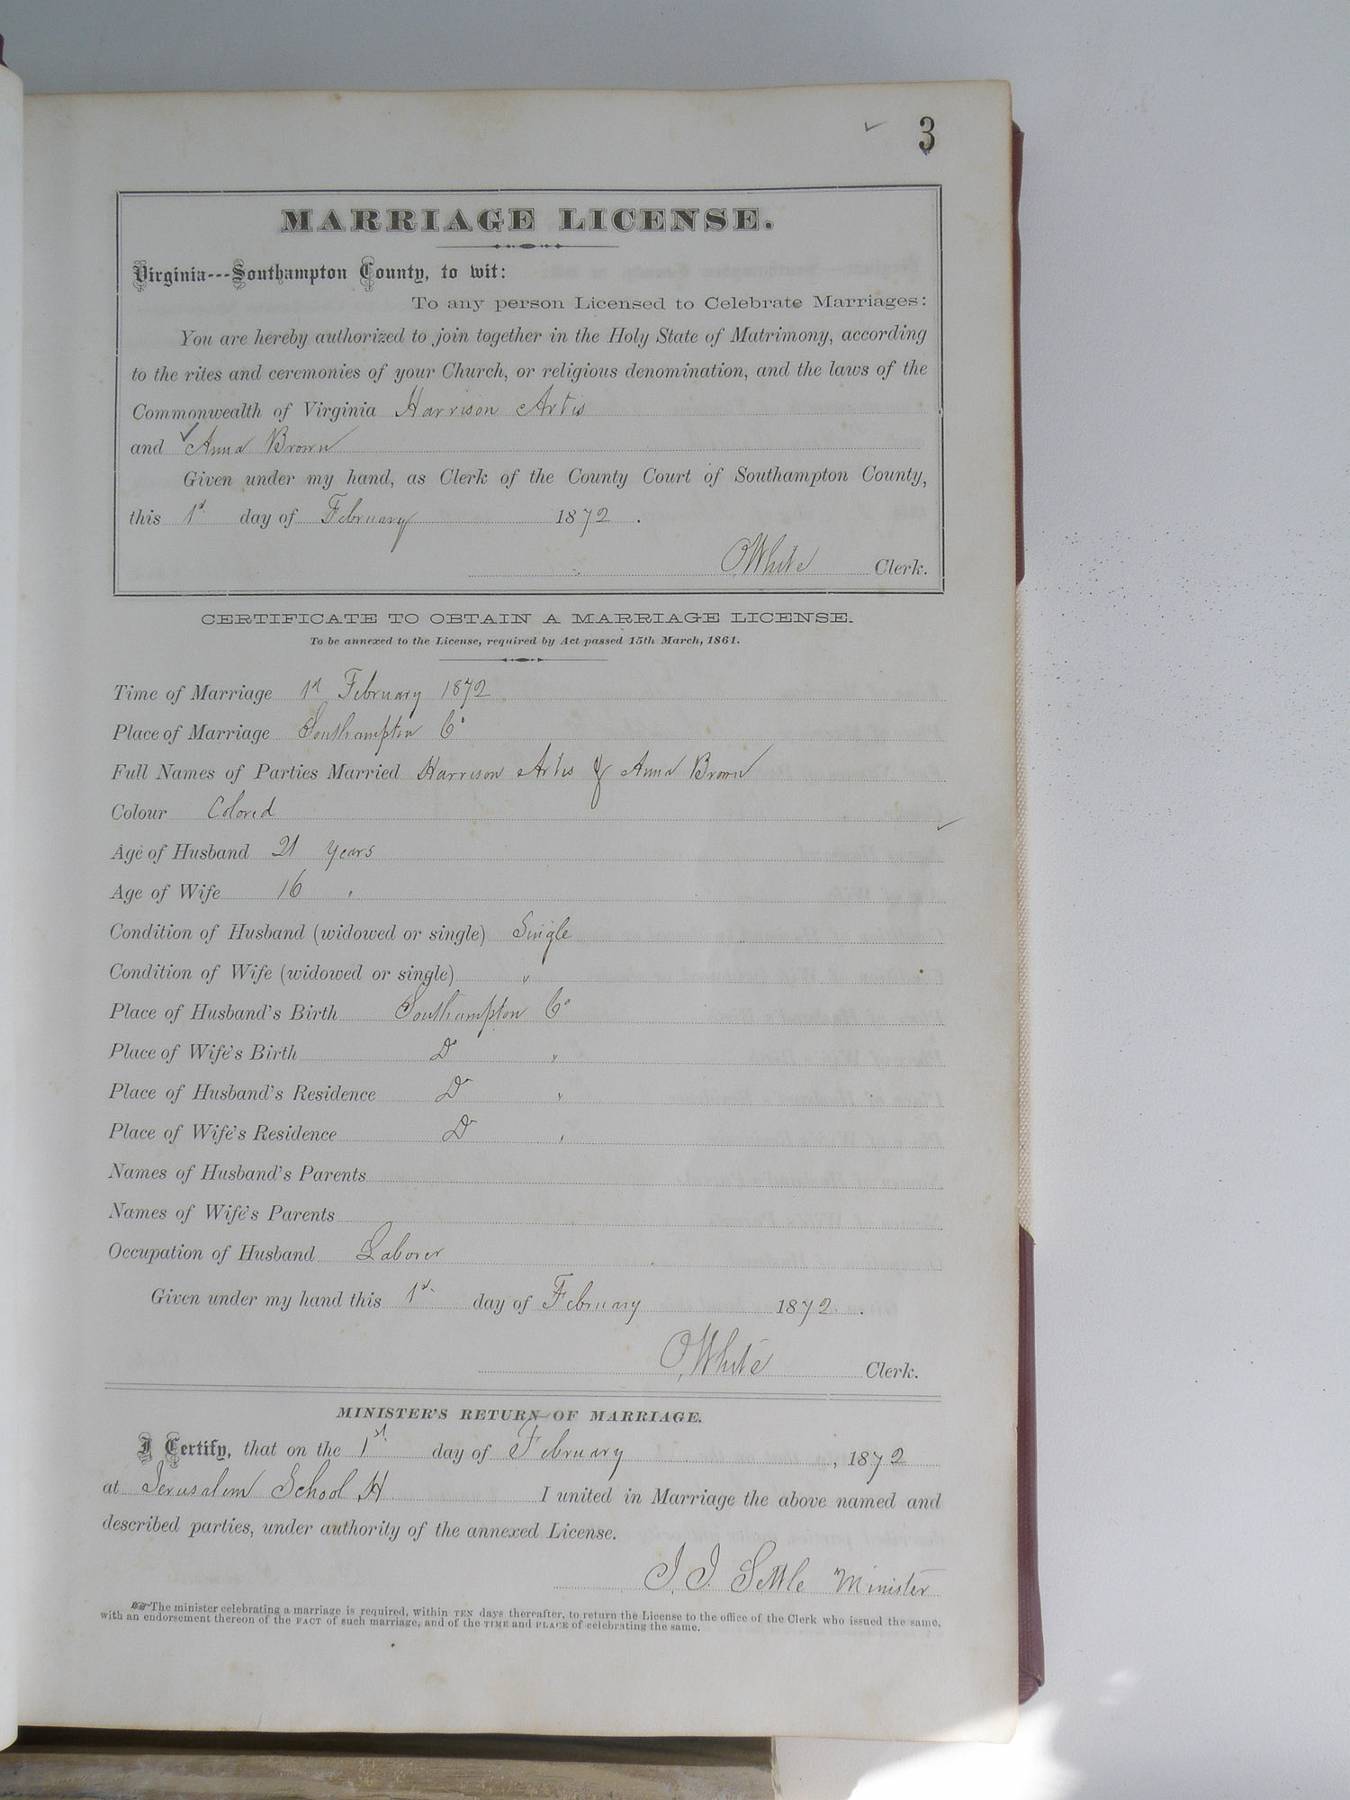 3
MARRIAGE LICENSE.
Virginia---Southampton County, to wit:
To any person Licensed to Celebrate Marriages:
You are hereby authorized to join together in the Holy State of Matrimony, according
to the rites and ceremonies of your Church, or religious denomination, and the laws of the
Commonwealth of Virginia Harrison Artis
and Anna Brown
Given under my hand, as Clerk of the County Court of Southampton County,
this 1st day of February 1872.
O White Clerk.
CERTIFICATE TO OBTAIN A MARRIAGE LICENSE.
To be annexed to the License, required by Act passed 15th March, 1861.
Time of Marriage 1st February 1872
Place of Marriage Southampton Co
Full Names of Parties Married Harrison Artis & Anna Brown
Colour Colored
Age of Husband 21 years
Age of Wife 16 "
Condition of Husband (widowed or single) Single
Condition of Wife (widowed or single) "
Place of Husband's Birth Southampton Co
Place of Wife's Birth Do "
Place of Husband's Residence Do "
Place of Wife's Residence Do "
Names of Husband's Parents
Names of Wife's Parents
Occupation of Husband Laborer
Given under my hand this 1st day of February 1872.
O White Clerk.
MINISTER'S RETURN OF MARRIAGE.
I Certify, that on the 1st day of February, 1872
at Jerusalem School H I united in Marriage the above named and
described parties, under authority of the annexed License.
J. J. Settle Minister
The minister celebrating a marriage is required, within TEN days thereafter, to return the License to the office of the Clerk who issued the same,
with an endorsement thereon of the FACT of such marriage, and of the TIME and PLACE of celebrating the same.